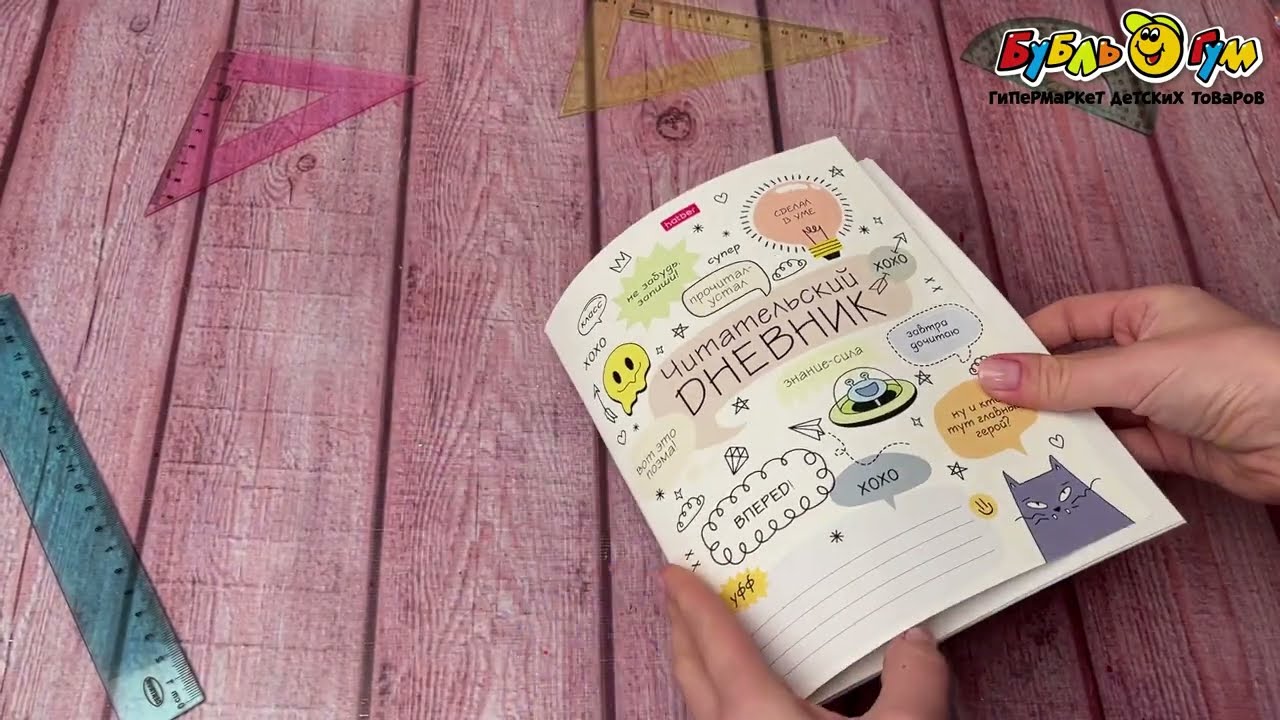 Бубль Гум
гипермаркет детских товаров
hatber
сделал
в уме
супер
не забудь,
запиши!
прочитал-
устал
хохо
класс
хохо
Читательский
ДНЕВНИК
завтра
дочитаю
знание-сила
ну и кт
тут главный
герой?
вот это
поэма!
ВПЕРЕД!
хохо
уфф